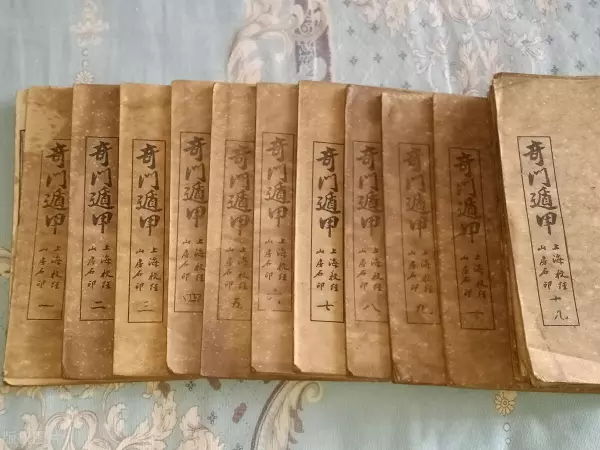 奇门遁甲
上海校经
山房石印
一
奇门遁甲
上海校经
山房石印
二
奇门遁甲
上海校经
山房石印
三
奇门遁甲
上海校经
山房石印
四
奇门遁甲
上海校经
山房石印
五
奇门遁甲
上海校经
山房石印
六
奇门遁甲
上海校经
山房石印
七
奇门遁甲
上海校经
山房石印
八
奇门遁甲
上海校经
山房石印
九
奇门遁甲
上海校经
山房石印
十
奇门遁甲
上海校经
山房石印
十八